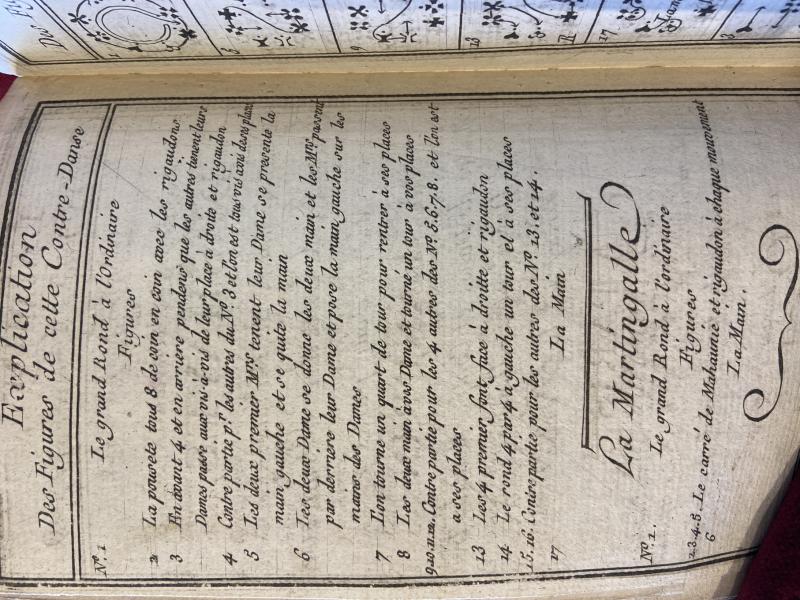 Explication
Des Figures de cette Contre-Danse
N.º 1 Le grand Rond à l'Ordinaire
Figures
2 La poussete tous 8 de coin en coin avec les rigaudons
3 En avant 4 et en arrière pendens que les autres tienent leurs
Dames passée aux vis-à-vis de leur place à droite et rigaudon
4 Contre partie p.r les autres du N.º 3 et l'on est tous vis avis de ses places
5 Les deux premier M.rs tenent leur Dame se presente la
main gauche et se quite la main
6 Les deux Dame se donne les deux main et les M.rs passent
par derriere leur Dame et pose la main gauche sur les
mains des Dames
7 L'on tourne un quart de tour pour rentrer à ses places
8 Les deux main à vos Dame et tourné un tour à vos places
9.10.11.12. Contre partie pour les 4 autres des N.º 5.6.7.8. et l'on est
a ses places
13 Les 4 premier font face à droitte et rigaudon
14 Le rond 4 par 4 à gauche un tour et à ses places
15.16. Contre partie pour les autres des N.º 13. et 14.
17 La Main
La Martingalle
N.º 1. Le grand Rond à l'ordinaire
Figures
2.3.4.5. Le carré de Mahaunie et rigaudon à chaque mouvement
6 La Main.